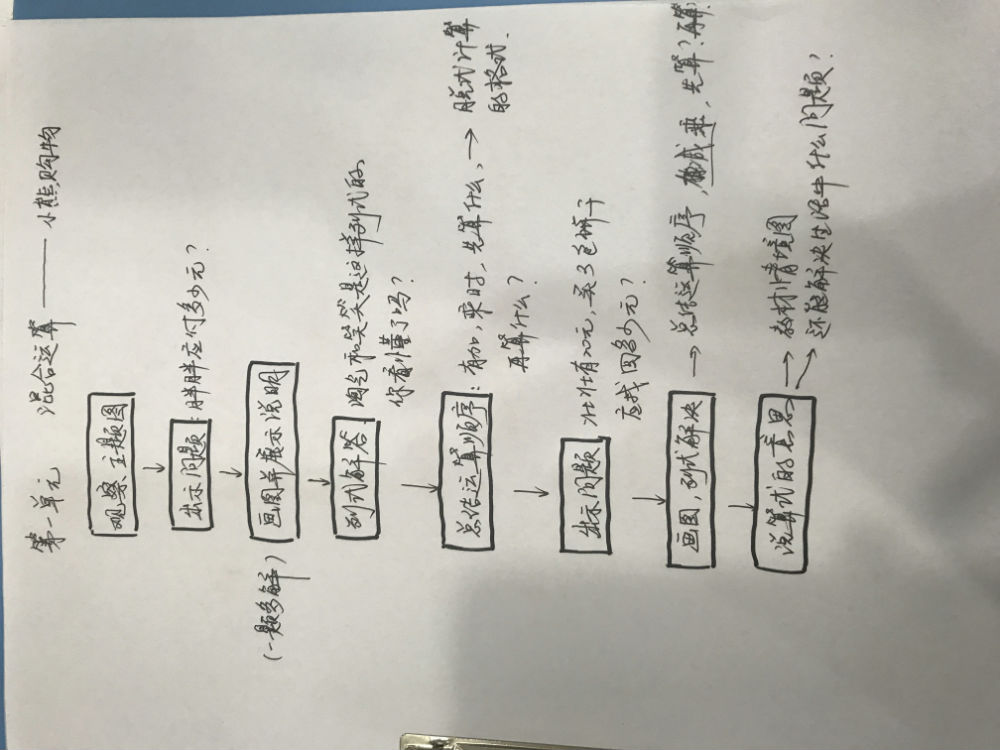 第一单元 混合运算 —— 小熊购物
观察主题图
↓
出示问题：胖胖应付多少元？
↓
(一题多解) 画图并展示说明
↓
列式解答 淘气和笑笑是这样列式的,
你看懂了吗？
↓
总结运算顺序：有加，乘时，先算什么， → 脱式计算
再算什么？ 的格式.
↓
出示问题 壮壮有20元，买3包饼干
应找回多少元？
↓
画图，列式解决 → 总结运算顺序，减，乘，先算？再算
↓
说算式的意思 → 教材情境图
→ 还能解决生活中什么问题？